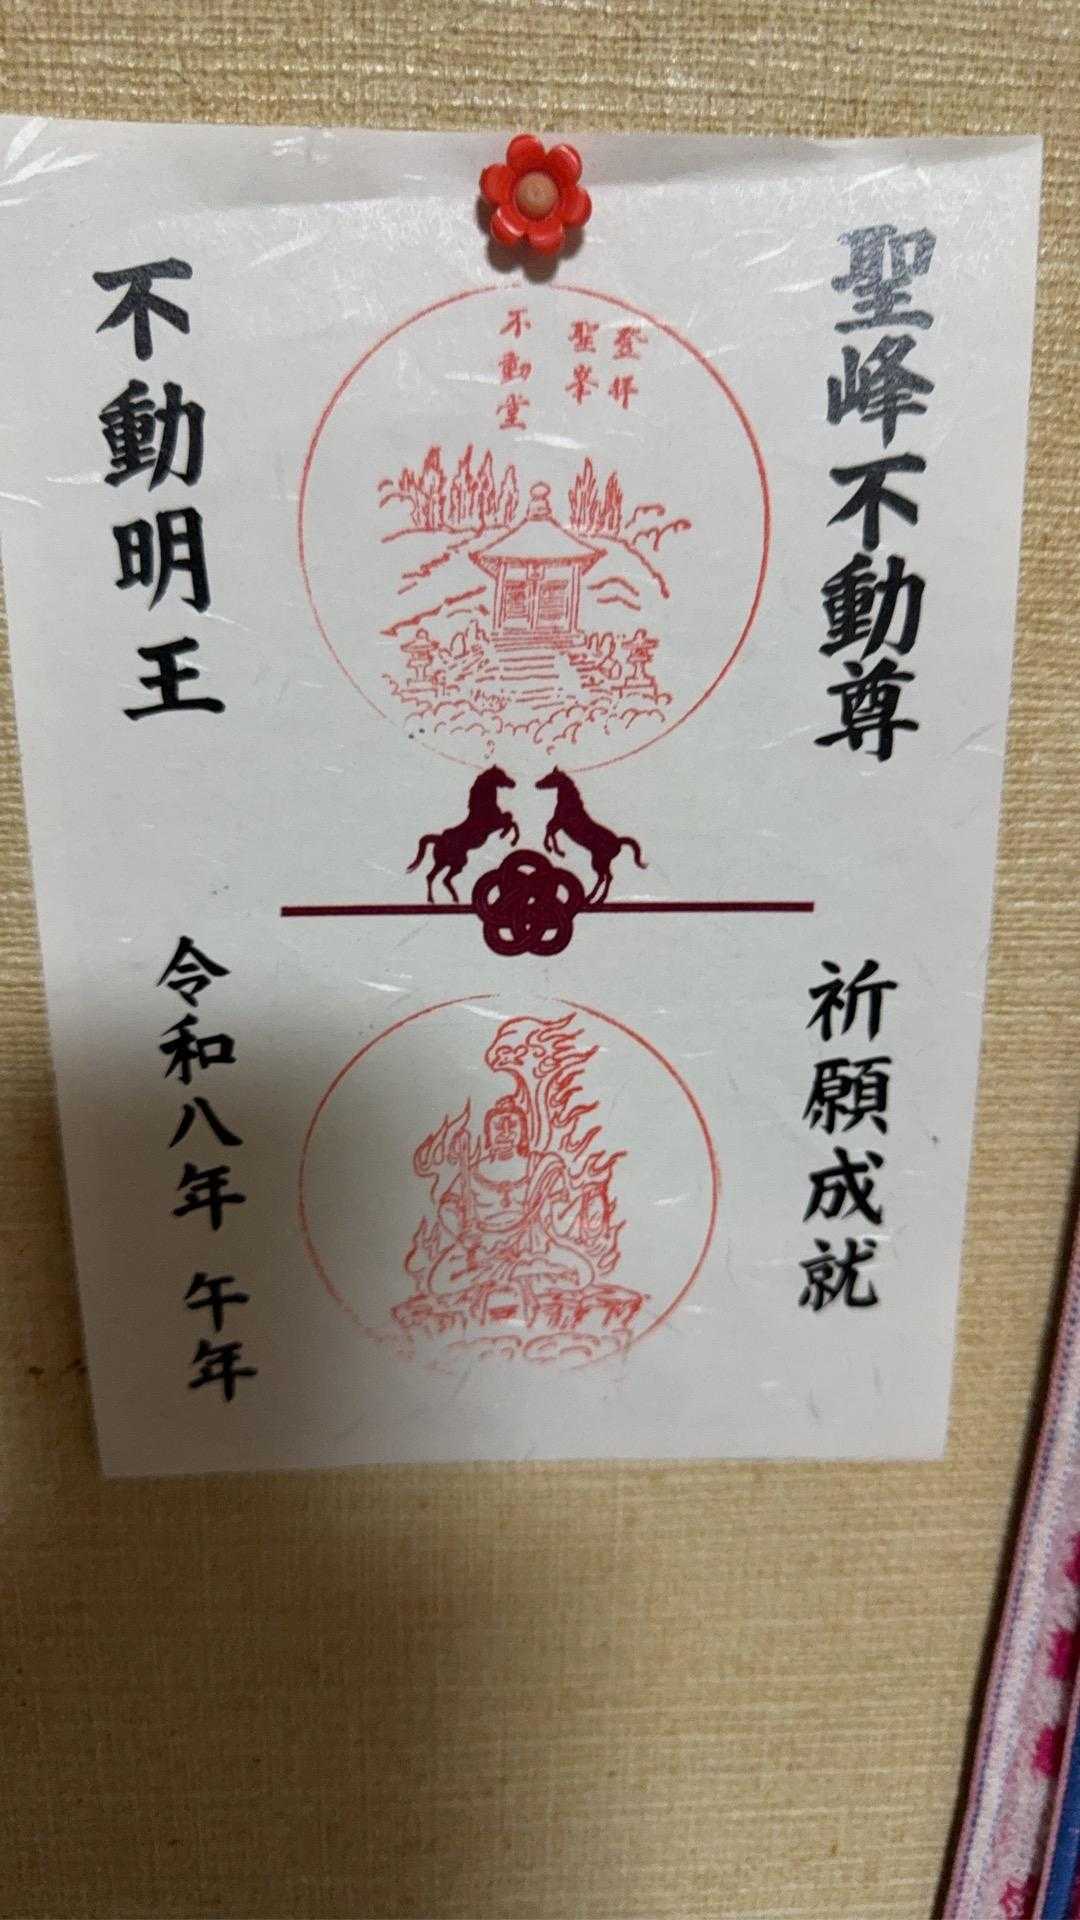 聖峰不動尊
登拝
聖峯
不動堂
不動明王
祈願成就
令和八年 午年